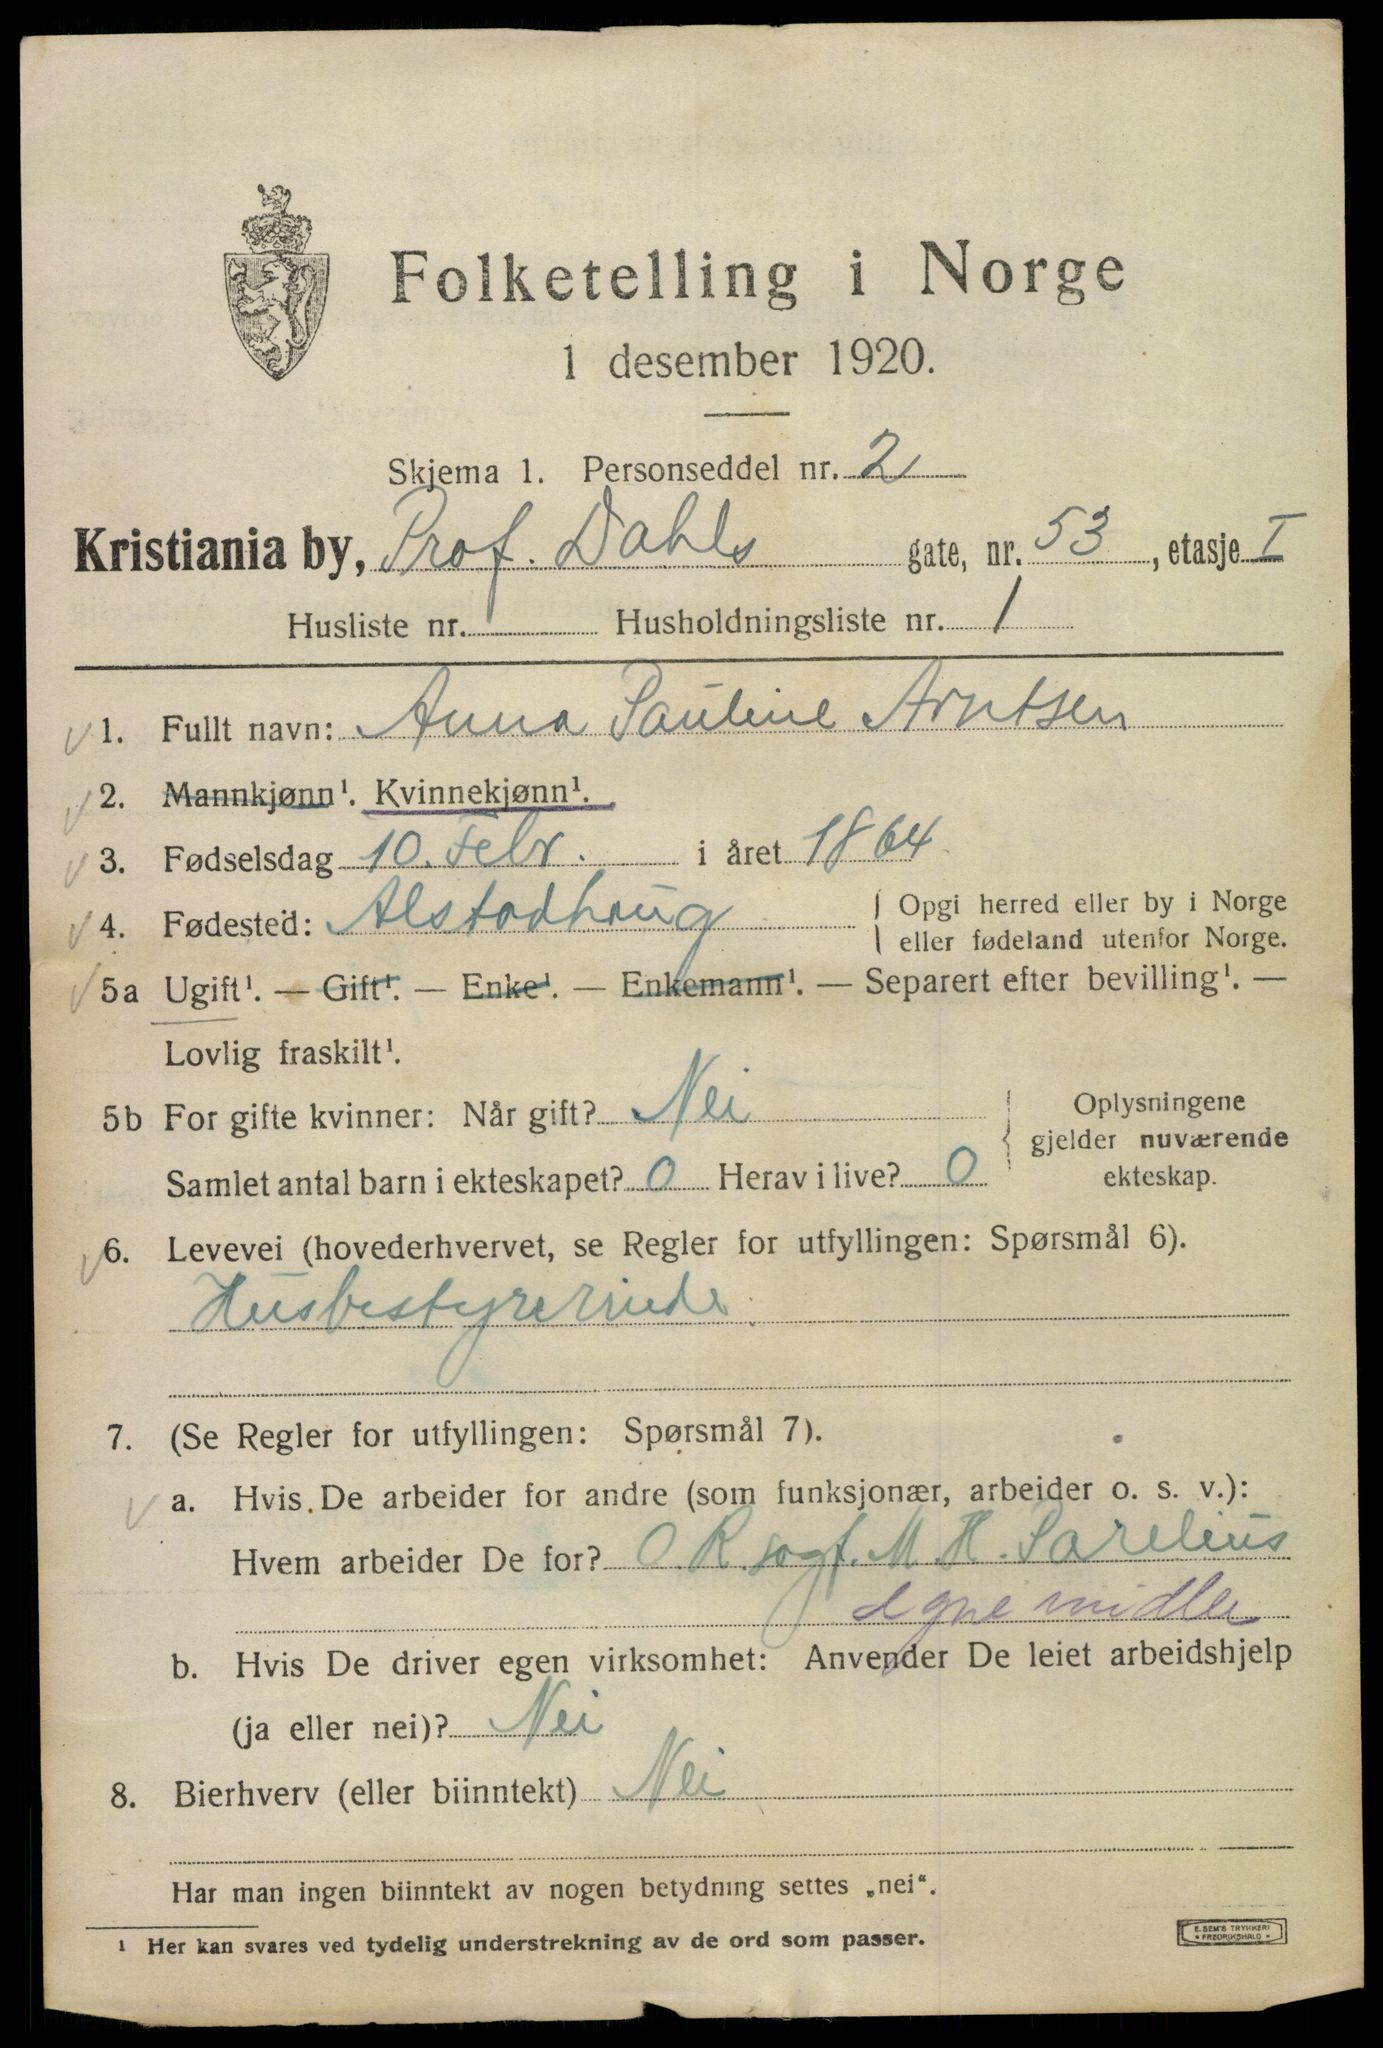 Folketelling i Norge
1 desember 1920.
Skjema 1. Personseddel nr. 2
Kristiania by, Prof. Dahls gate, nr. 53, etasje I
Husliste nr. Husholdningsliste nr. 1
1. Fullt navn: Anna Pauline Arntsen
2. Mannkjønn¹. Kvinnekjønn¹.
3. Fødselsdag 10. Febr. i året 1864
4. Fødested: Alstadhaug { Opgi herred eller by i Norge
eller fødeland utenfor Norge.
5a Ugift¹. — Gift¹. — Enke¹. — Enkemann¹. — Separert efter bevilling¹. —
Lovlig fraskilt¹.
5b For gifte kvinner: Når gift? Nei { Oplysningene
gjelder nuværende
Samlet antal barn i ekteskapet? 0 Herav i live? 0 ekteskap.
6. Levevei (hovederhvervet, se Regler for utfyllingen: Spørsmål 6).
Husbestyrerinde
7. (Se Regler for utfyllingen: Spørsmål 7).
a. Hvis De arbeider for andre (som funksjonær, arbeider o. s. v.):
Hvem arbeider De for? O.R.sagf. M. H. Parelius
egne midler
b. Hvis De driver egen virksomhet: Anvender De leiet arbeidshjelp
(ja eller nei)? Nei
8. Bierhverv (eller biinntekt) Nei
Har man ingen biinntekt av nogen betydning settes „nei“.
¹ Her kan svares ved tydelig understrekning av de ord som passer.
E. SEM'S TRYKKERI
• FREDRIKSHALD •